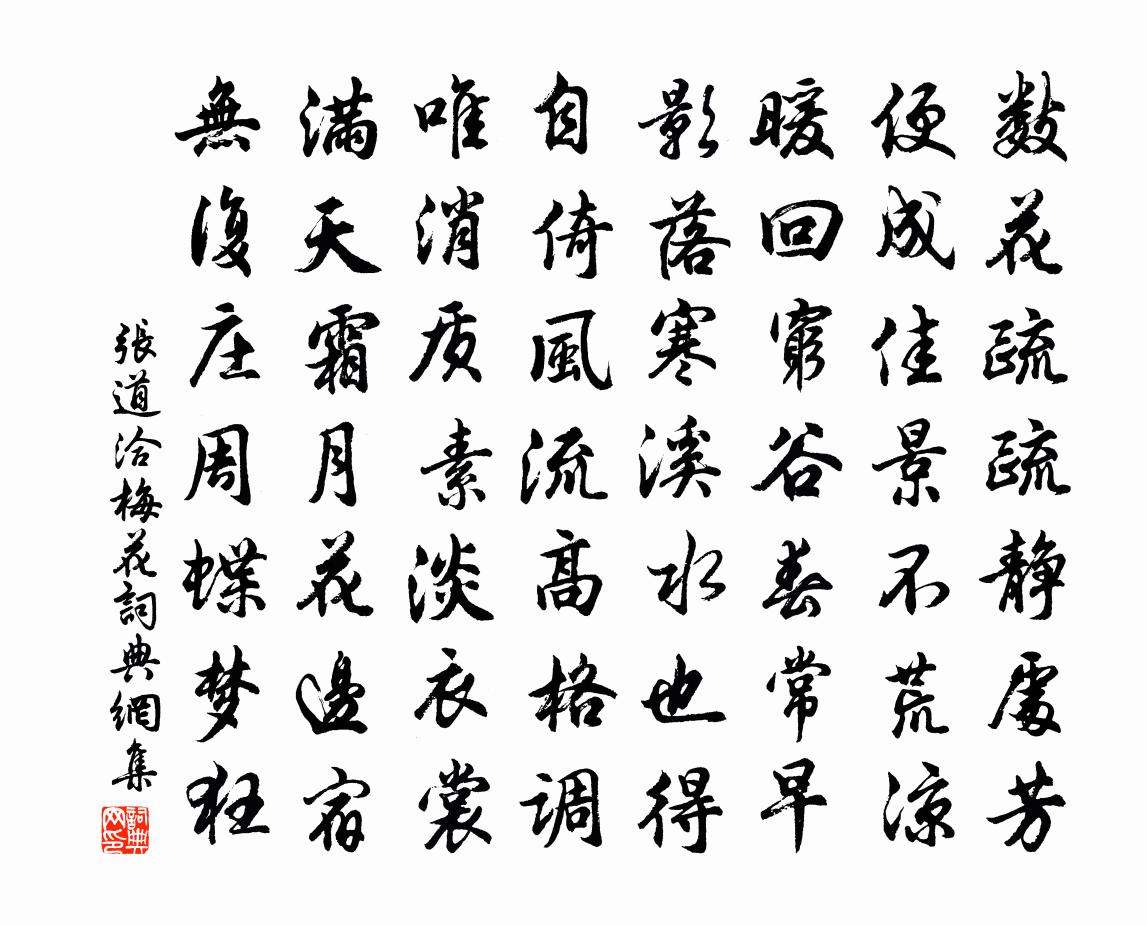 数花疏疏静處芳
便成佳景不荒涼
暖回窮谷春常早
影落寒溪水也得
自倚風流高格调
唯消质素淡衣裳
满天霜月花邊宿
無復庄周蝶梦狂
張道洽梅花詞典網集
詞典网印